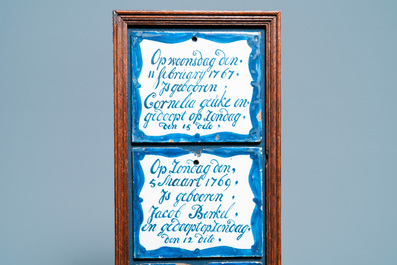 Op woonsdag den,
11 february 1767.
Js geboren,
Cornelia geuke en
gedoopt op Zondag.
den 15 dito,
Op Zondag den,
5 Maart 1769,
Js geboren,
Jacob Berkel,
en gedoopt op Zondag.
den 12 dito,